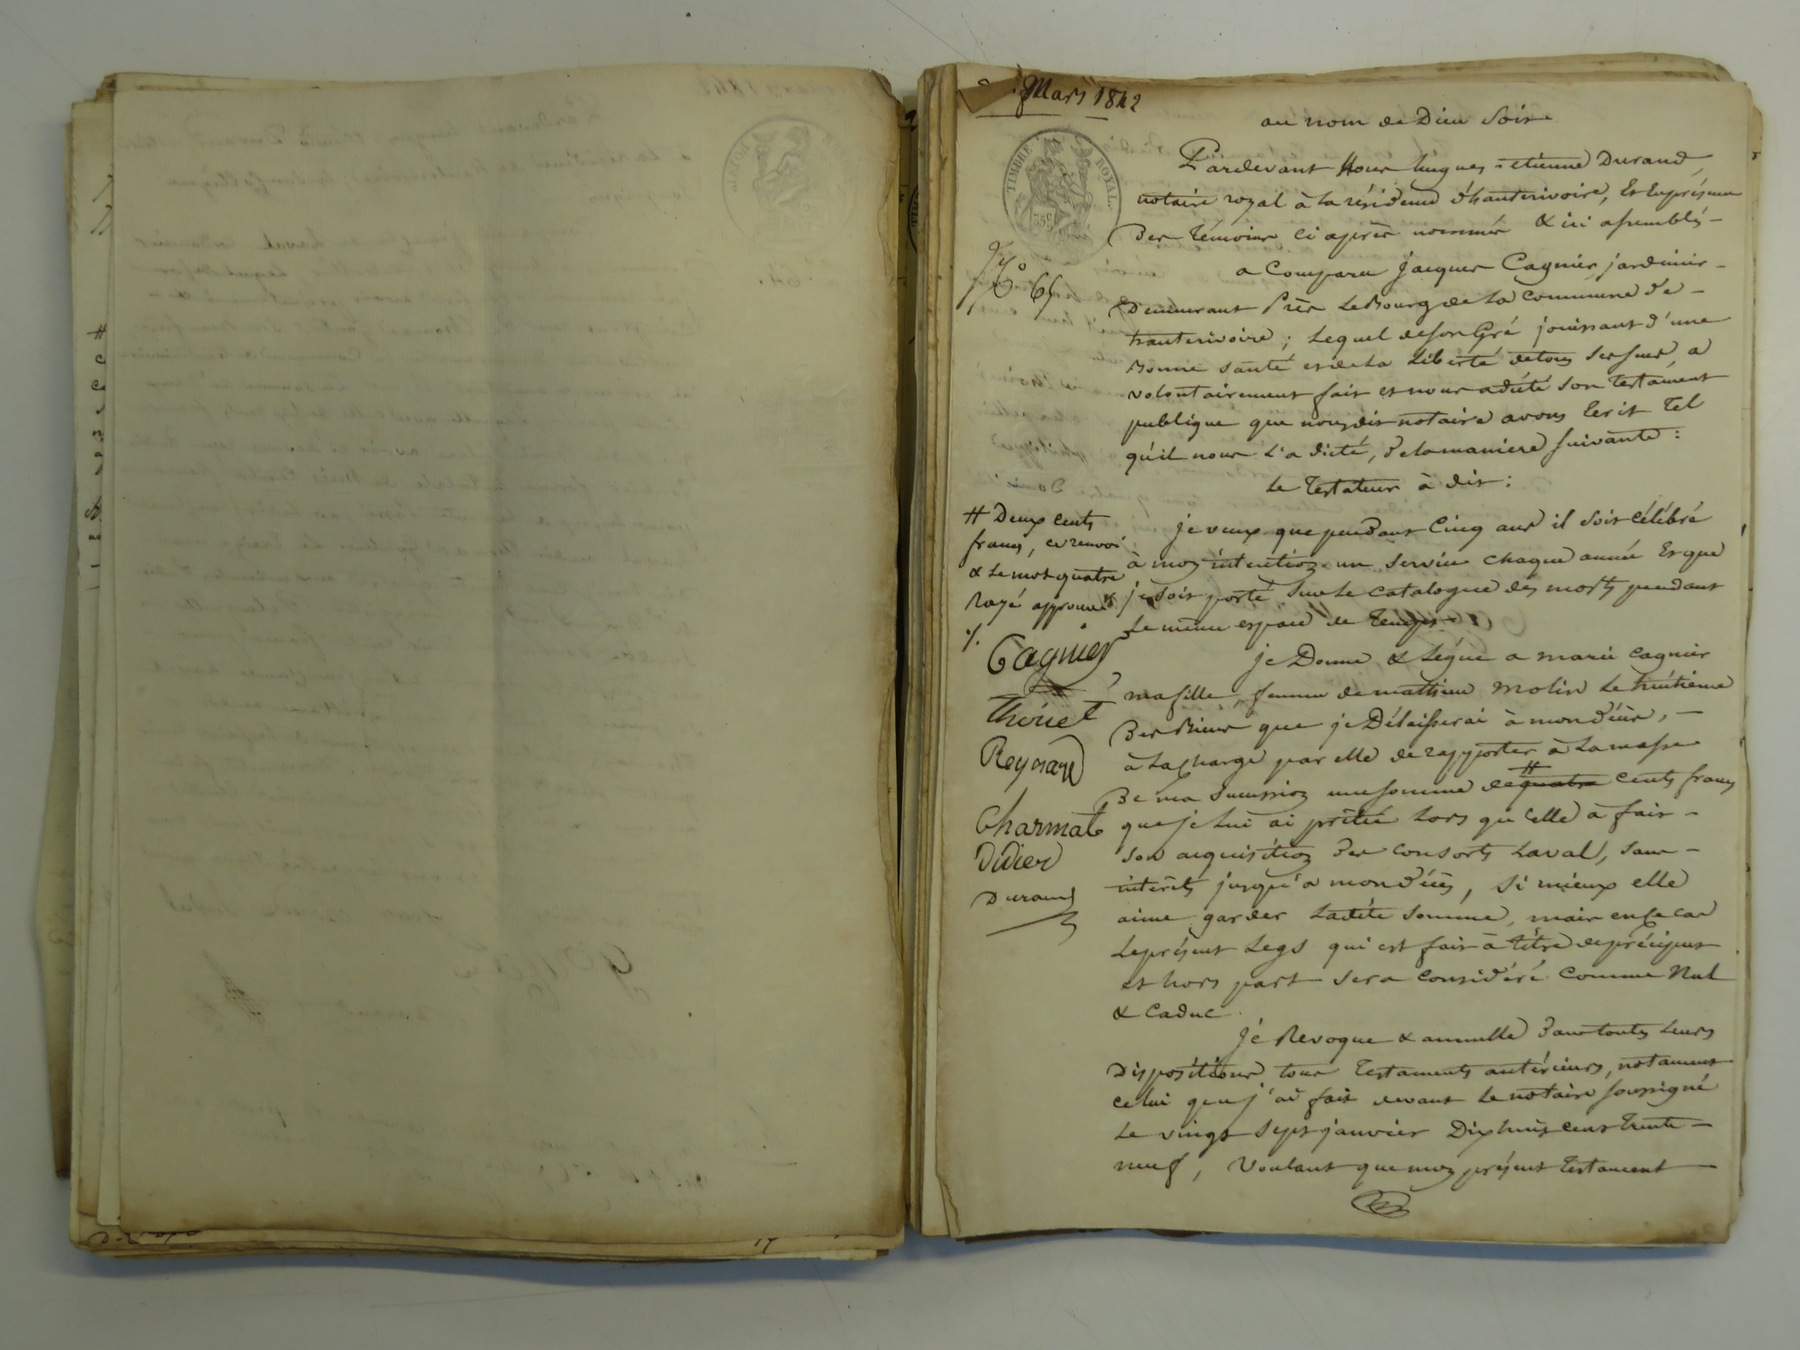 Mars 1842
TIMBRE ROYAL
35c
N° 65
au nom de Dieu soit
Pardevant Nous hugues-etienne Durand,
notaire royal à la résidence d'hauterivoire, Et En présence
Des témoins ci après nommés & ici assemblés –
a Comparu jacques Cagnier, jardinier –
Demeurant Près Le Bourg de La Commune de –
hauterivoire ; Lequel de son Gré jouissant d'une
Bonne santé et de La Liberté de tous ses sens, a
volontairement fait et nous a dicté son testament
publique que nousdit notaire avons Ecrit Tel
qu'il nous L'a dicté, de la maniere suivante :
Le Testateur à dit :
je veux que pendant Cinq ans il soit célébré
à mon intention un service chaque année Et que
je sois porté sur Le Catalogue des morts pendant
Le même espace de temps
je Donne & Lègue a marie Cagnier
ma fille, femme de mathieu Molin Le huitième
Des Biens que je Délaisserai à mon décès, –
à La charge par elle de rapporter à La masse
De ma succession une somme de quatre # cents francs
que je Lui ai prêtée Lors qu'elle à fait –
son acquisition des consorts Laval, sans –
intérêts jusqu'a mon décès, si mieux elle
aime garder Ladite somme, mais en ce cas
Le présent Legs qui est fait à titre de préciput
et hors part sera considéré Comme Nul
& Caduc.
je Revoque & annulle dans toutes Leurs
Dispositions tous testaments antérieurs, notament
celui que j'ai fait devant Le notaire soussigné
Le vingt sept janvier Dix huit cent trente –
neuf, Voulant que mon présent testament
# Deux cents
francs, ce renvoi
& Le mot quatre
Rayé approuvés
./.
Cagnier
Thivel
Reynard
Charmat
Didier
Durand